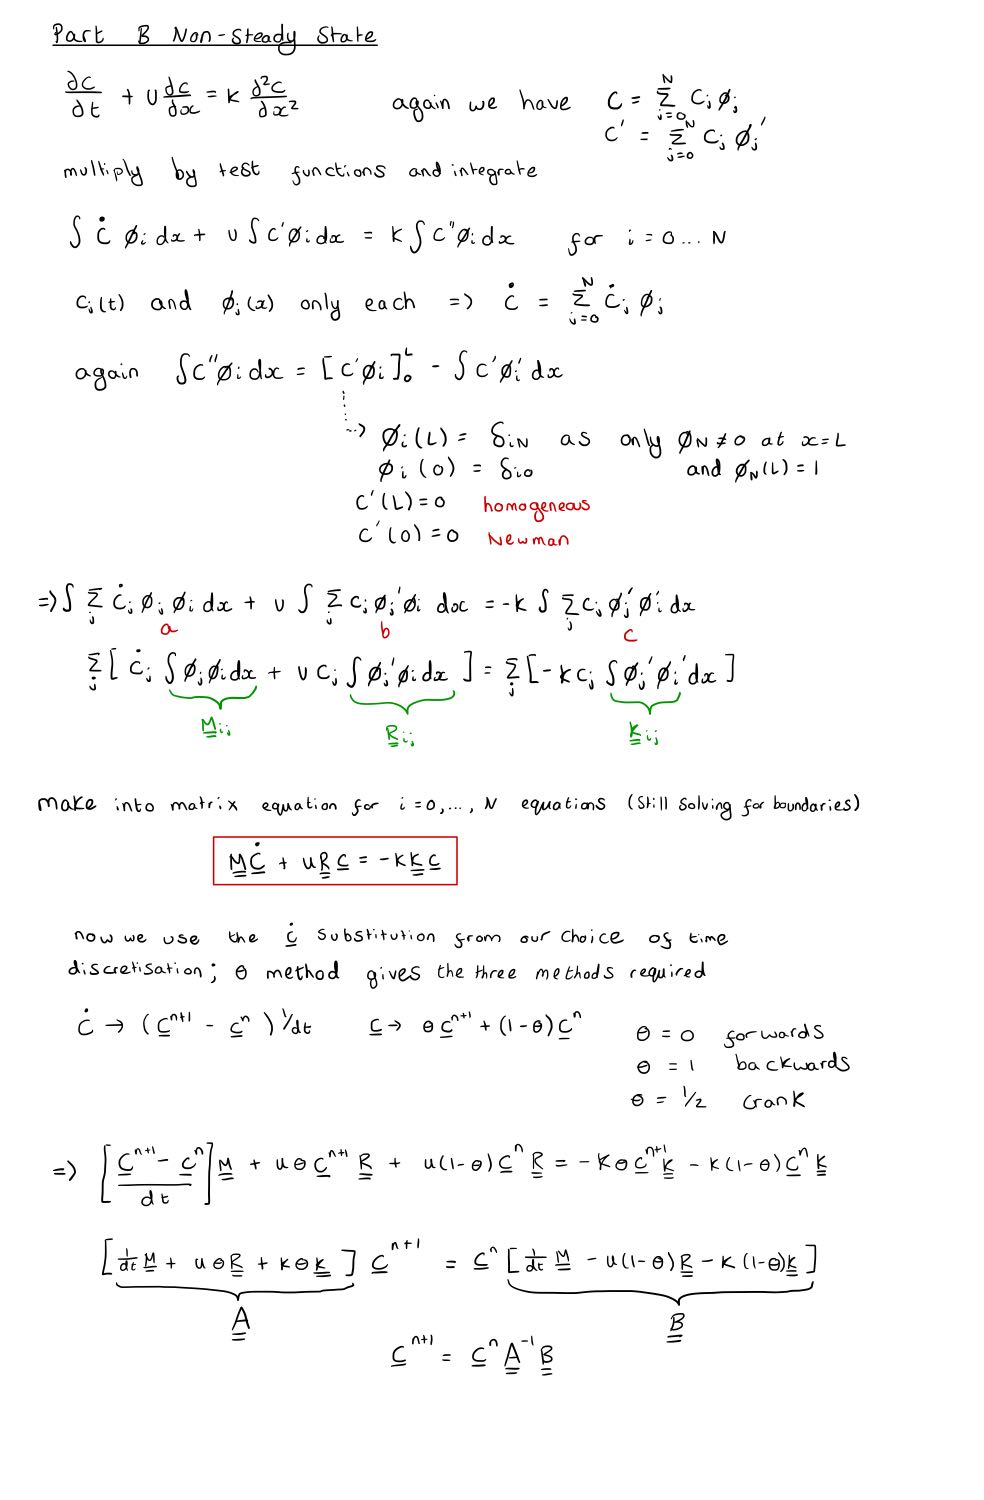 Part B Non-Steady State
∂c/∂t + u ∂c/∂x = k ∂²c/∂x² again we have c = Σ_{j=0}^{N} c_j ø_j
c' = Σ_{j=0}^{N} c_j ø_j'
multiply by test functions and integrate
∫ ċ ø_i dx + u ∫ c'ø_i dx = k ∫ c''ø_i dx for i = 0 ... N
c_j(t) and ø_j(x) only each => ċ = Σ_{j=0}^{N} ċ_j ø_j
again ∫c''ø_i dx = [c'ø_i]_0^L - ∫ c'ø_i' dx
--> ø_i(L) = δ_iN as only ø_N ≠ 0 at x = L
ø_i(0) = δ_i0 and ø_N(L) = 1
c'(L) = 0 homogeneous
c'(0) = 0 Newman
=> ∫ Σ_j ċ_j ø_j ø_i dx + u ∫ Σ_j c_j ø_j' ø_i dx = -k ∫ Σ_j c_j ø_j' ø_i' dx
a b c
Σ_j [ ċ_j ∫ø_j ø_i dx + u c_j ∫ø_j' ø_i dx ] = Σ_j [ -k c_j ∫ø_j' ø_i' dx ]
M_ij R_ij K_ij
make into matrix equation for i = 0, ..., N equations (still solving for boundaries)
M Ċ + u R C = -k K C
now we use the ċ substitution from our choice of time
discretisation; θ method gives the three methods required
ċ → (c^{n+1} - c^n) 1/dt c → θ c^{n+1} + (1-θ) c^n
θ = 0 forwards
θ = 1 backwards
θ = 1/2 crank
=> [(c^{n+1} - c^n)/dt] M + uθ c^{n+1} R + u(1-θ) c^n R = -kθ c^{n+1} K - k(1-θ) c^n K
[1/dt M + uθR + kθK] c^{n+1} = c^n [1/dt M - u(1-θ)R - k(1-θ)K]
A B
c^{n+1} = c^n A^{-1} B